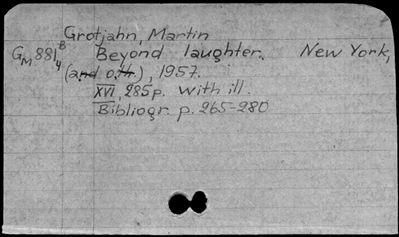 Grotjahn, Martin
GM 881 B/4 Beyond laughter. New York,
(and oth.), 1957.
XVI, 285p. with ill.
Bibliogr. p. 265-280